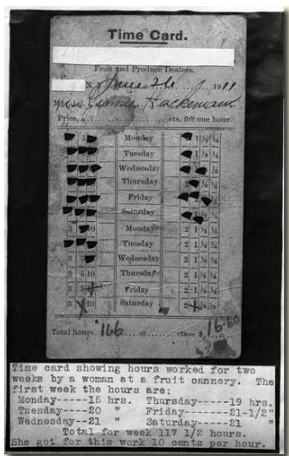 Time Card.
Fruit and Produce Dealers.
June 26 1911
Miss Hackemann
Price, cts. for one hour.
5 Monday 1 ½ ¼
Tuesday 1 ½ ¼
Wednesday
Thursday
Friday
Saturday
10 Monday 2 1 ½ ¼
Tuesday 2 1 ½ ¼
3 Wednesday 2 1 ½ ¼
3 5 10 Thursday 2 1 ½ ¼
3 5 Friday 2 1 ½ ¼
3 10 Saturday 2 ½ ¼
Total hours. 166 @ $ 16.60
Time card showing hours worked for two
weeks by a woman at a fruit cannery. The
first week the hours are:
Monday-----15 hrs. Thursday-----19 hrs.
Tuesday----20 " Friday-------21-1/2"
Wednesday--21 " Saturday-----21 "
Total for week 117 1/2 hours.
She got for this work 10 cents per hour.